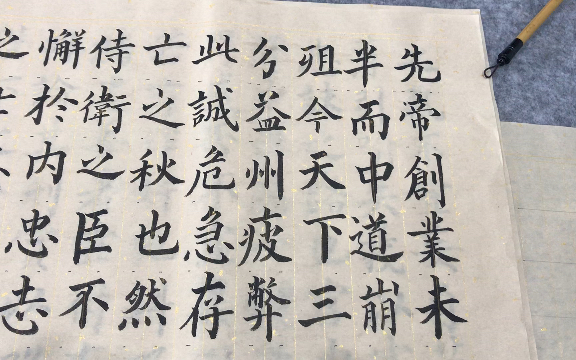 先帝創業未
半而中道崩
殂今天下三
分益州疲弊
此誠危急存
亡之秋也然
侍衛之臣不
懈於内忠志
之